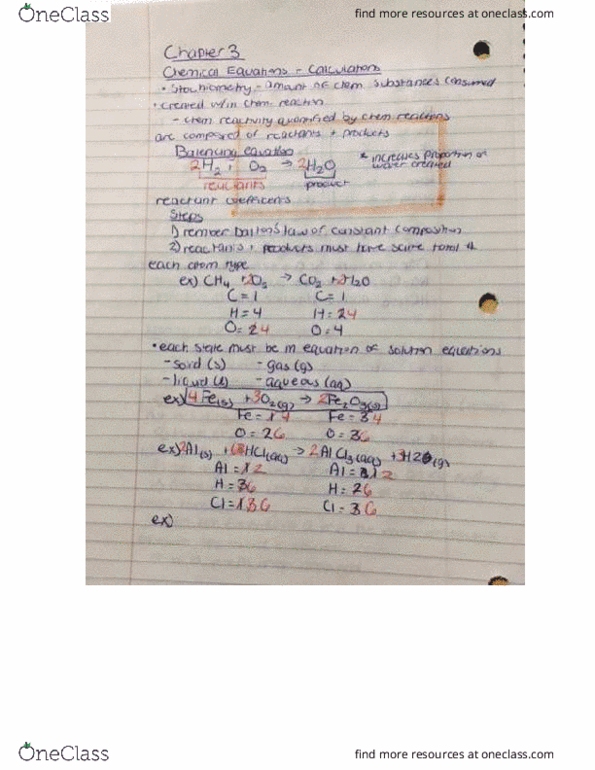 OneClass
find more resources at oneclass.com
Chapter 3
Chemical Equations - Calculations
• Stochiometry - amant of chem substances consumed
• created w/in chem reaction
- chem reactivity quantified by chem reactions
are composed of reactants + products
Balencing equation
2H₂ + O₂ → 2H₂O * increases proportion of
water created
reactants product
reactant coefficents
Steps
1) rember daltons law of constant composition
2) reactants + products must have same total #
each atom type
ex) CH₄ + 2O₂ → CO₂ + 2H₂O
C = 1 C = 1
H = 4 H = 24
O = 24 O = 4
• each state must be in equation of solution equations
- solid (s) - gas (g)
- liquid (l) - aqueous (aq)
ex) 4Fe(s) + 3O₂(g) → 2Fe₂O₃(s)
Fe = 14 Fe = 34
O = 26 O = 36
ex) 2Al(s) + 6HCl(aq) → 2AlCl₃(aq) + 3H2(g)
Al = 12 Al = 12
H = 36 H = 26
Cl = 136 Cl = 36
ex)
OneClass
find more resources at oneclass.com